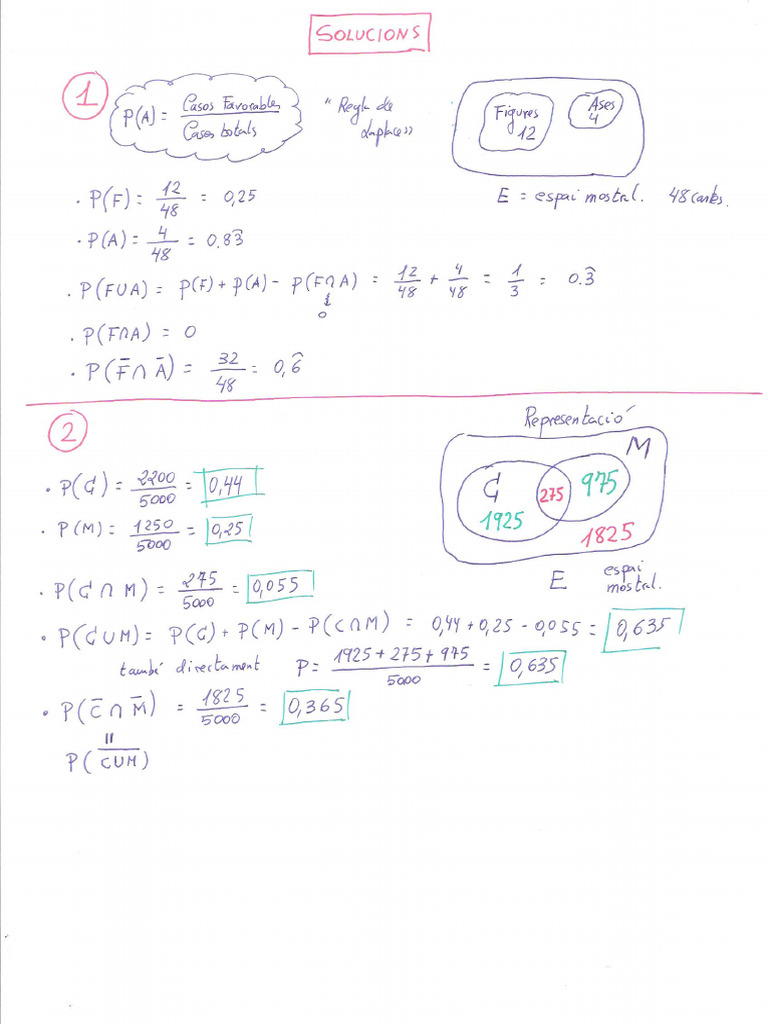 SOLUCIONS
1
P(A) = Casos Favorables / Casos totals
"Regla de Laplace"
Figures 12
Ases 4
E = espai mostral. 48 cartes.
· P(F) = 12/48 = 0,25
· P(A) = 4/48 = 0.83̂
· P(F∪A) = P(F) + P(A) - P(F∩A) = 12/48 + 4/48 = 1/3 = 0.3̂
↓
0
· P(F∩A) = 0
· P(F̄ ∩ Ā) = 32/48 = 0,6̂
2
Representació
· P(C) = 2200/5000 = 0,44
· P(M) = 1250/5000 = 0,25
C
M
1925
275
975
1825
E espai mostral.
· P(C ∩ M) = 275/5000 = 0,055
· P(C∪M) = P(C) + P(M) - P(C∩M) = 0,44 + 0,25 - 0,055 = 0,635
també directament P = 1925 + 275 + 975 / 5000 = 0,635
· P(C̄ ∩ M̄) = 1825/5000 = 0,365
=
P(C̅∪̅M̅)